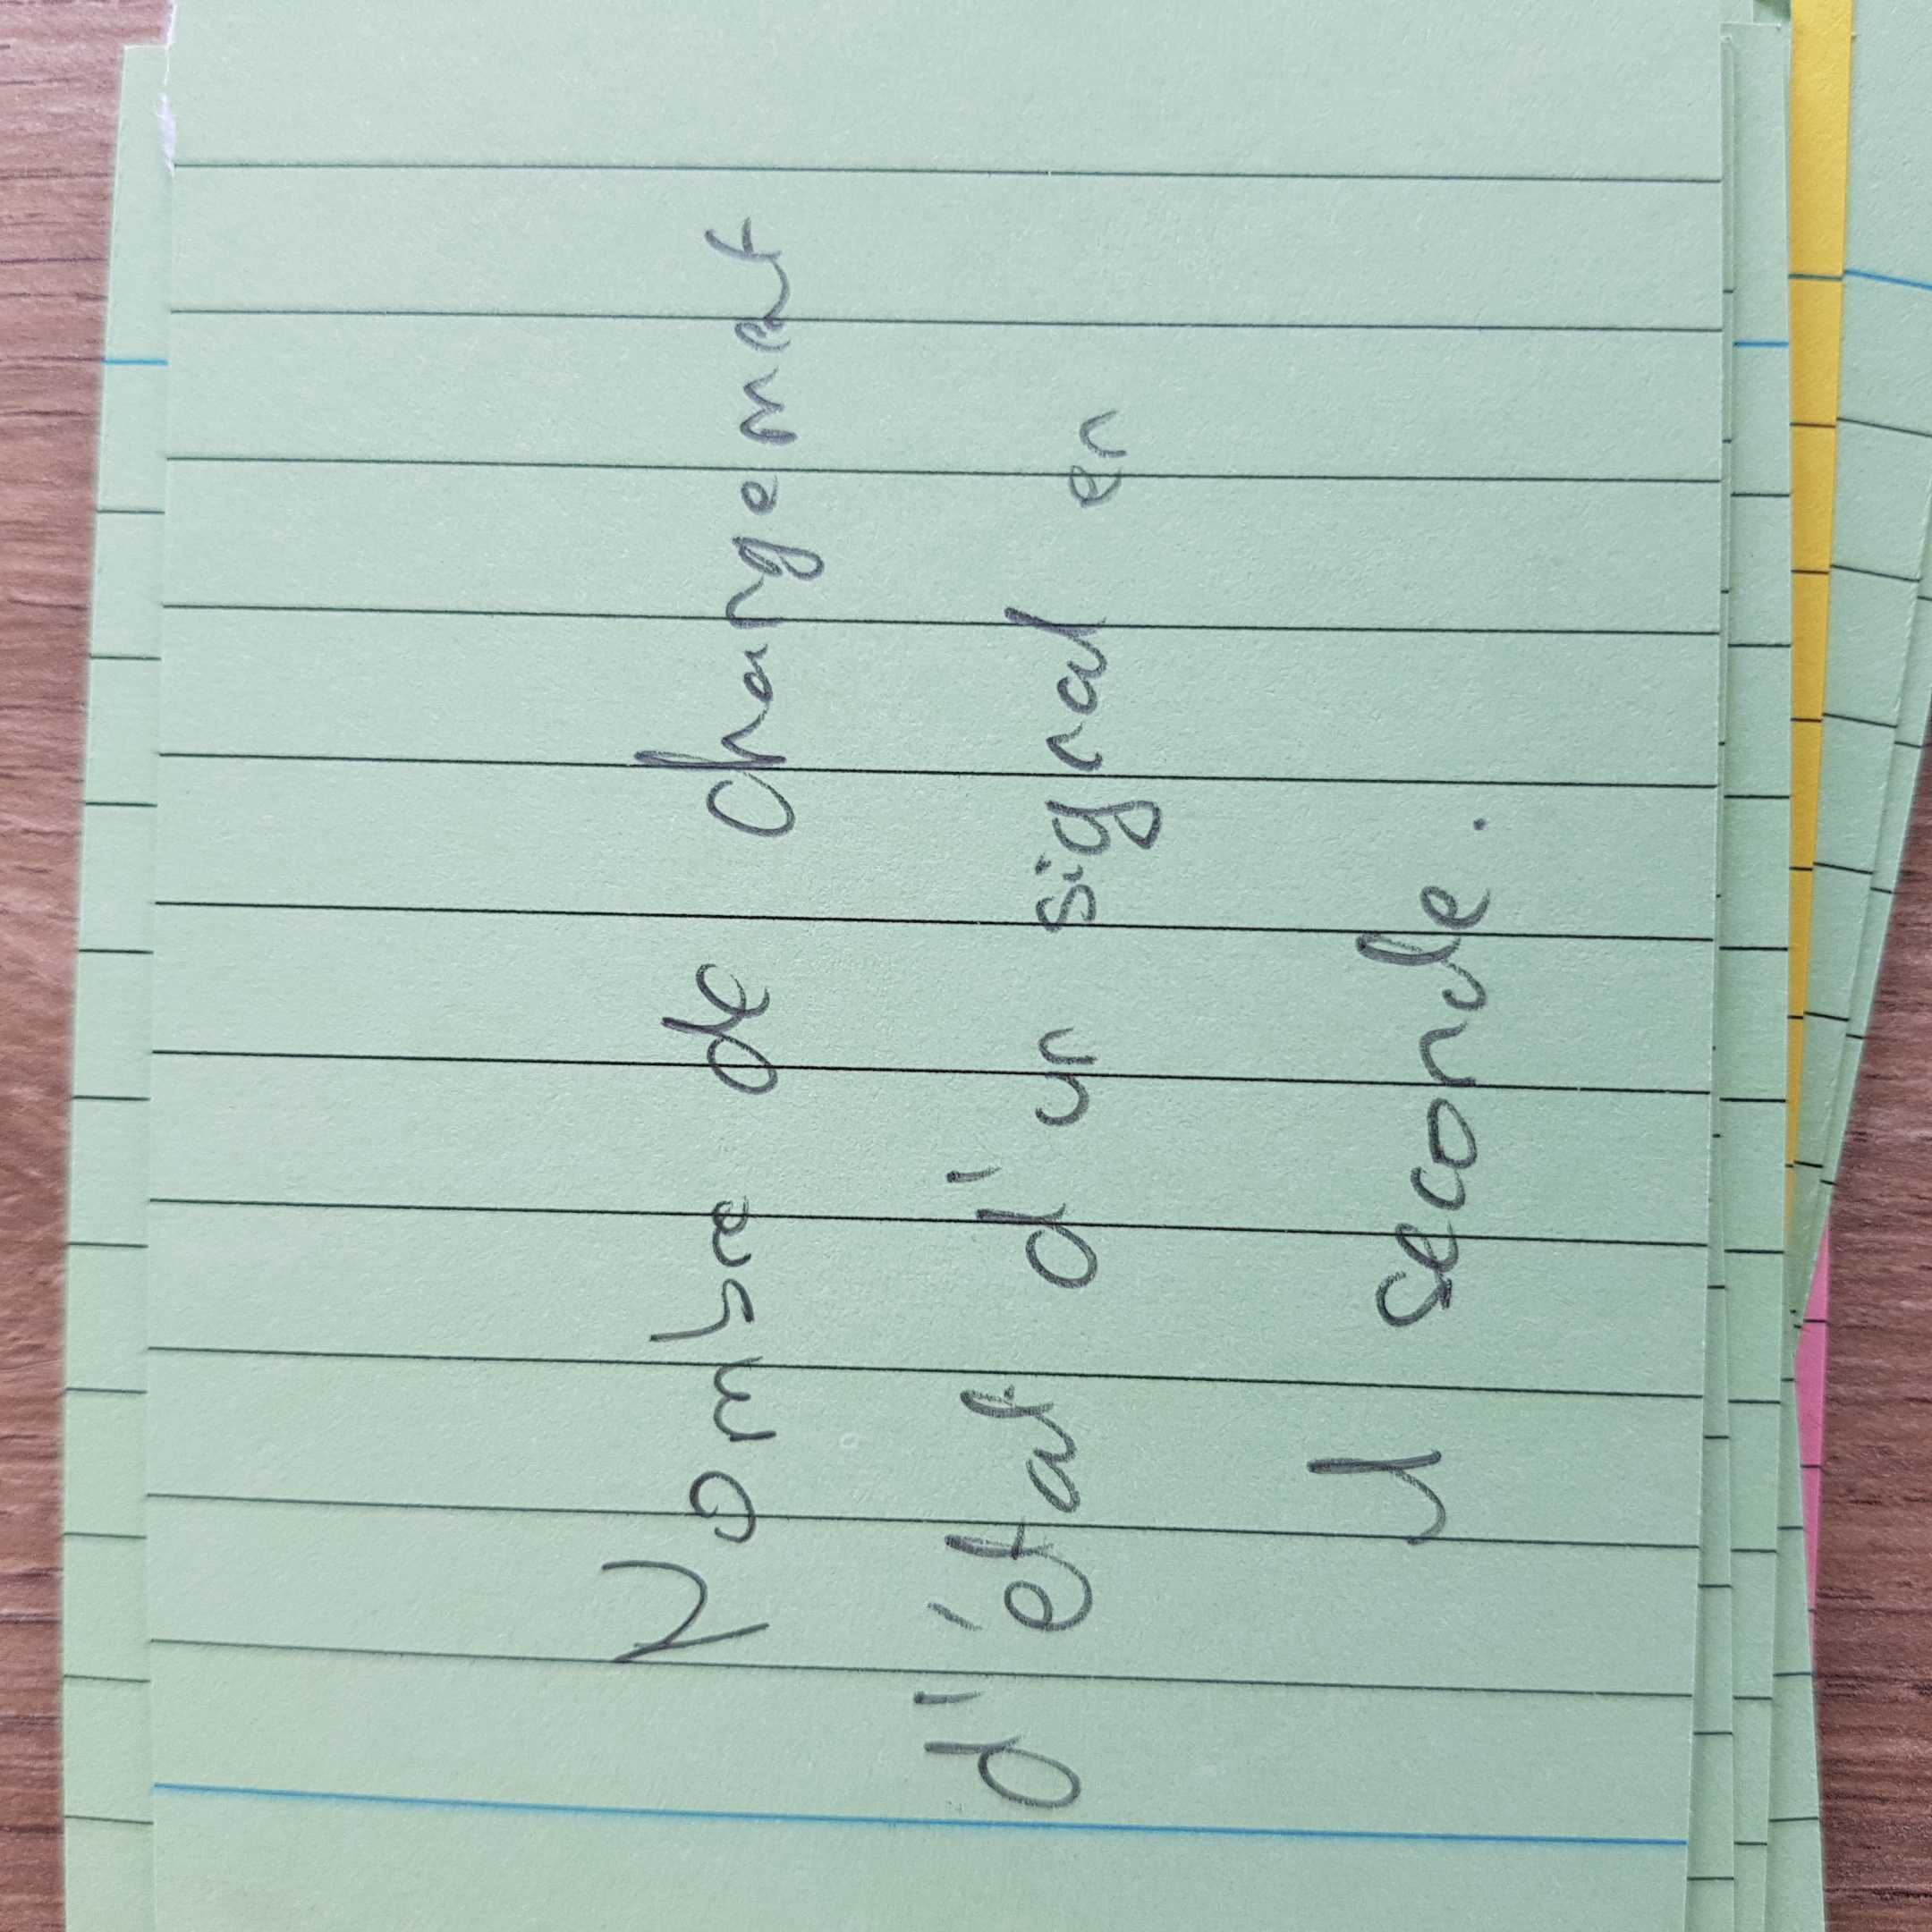 Nombre de changement
d'état d'un signal en
1 seconde.